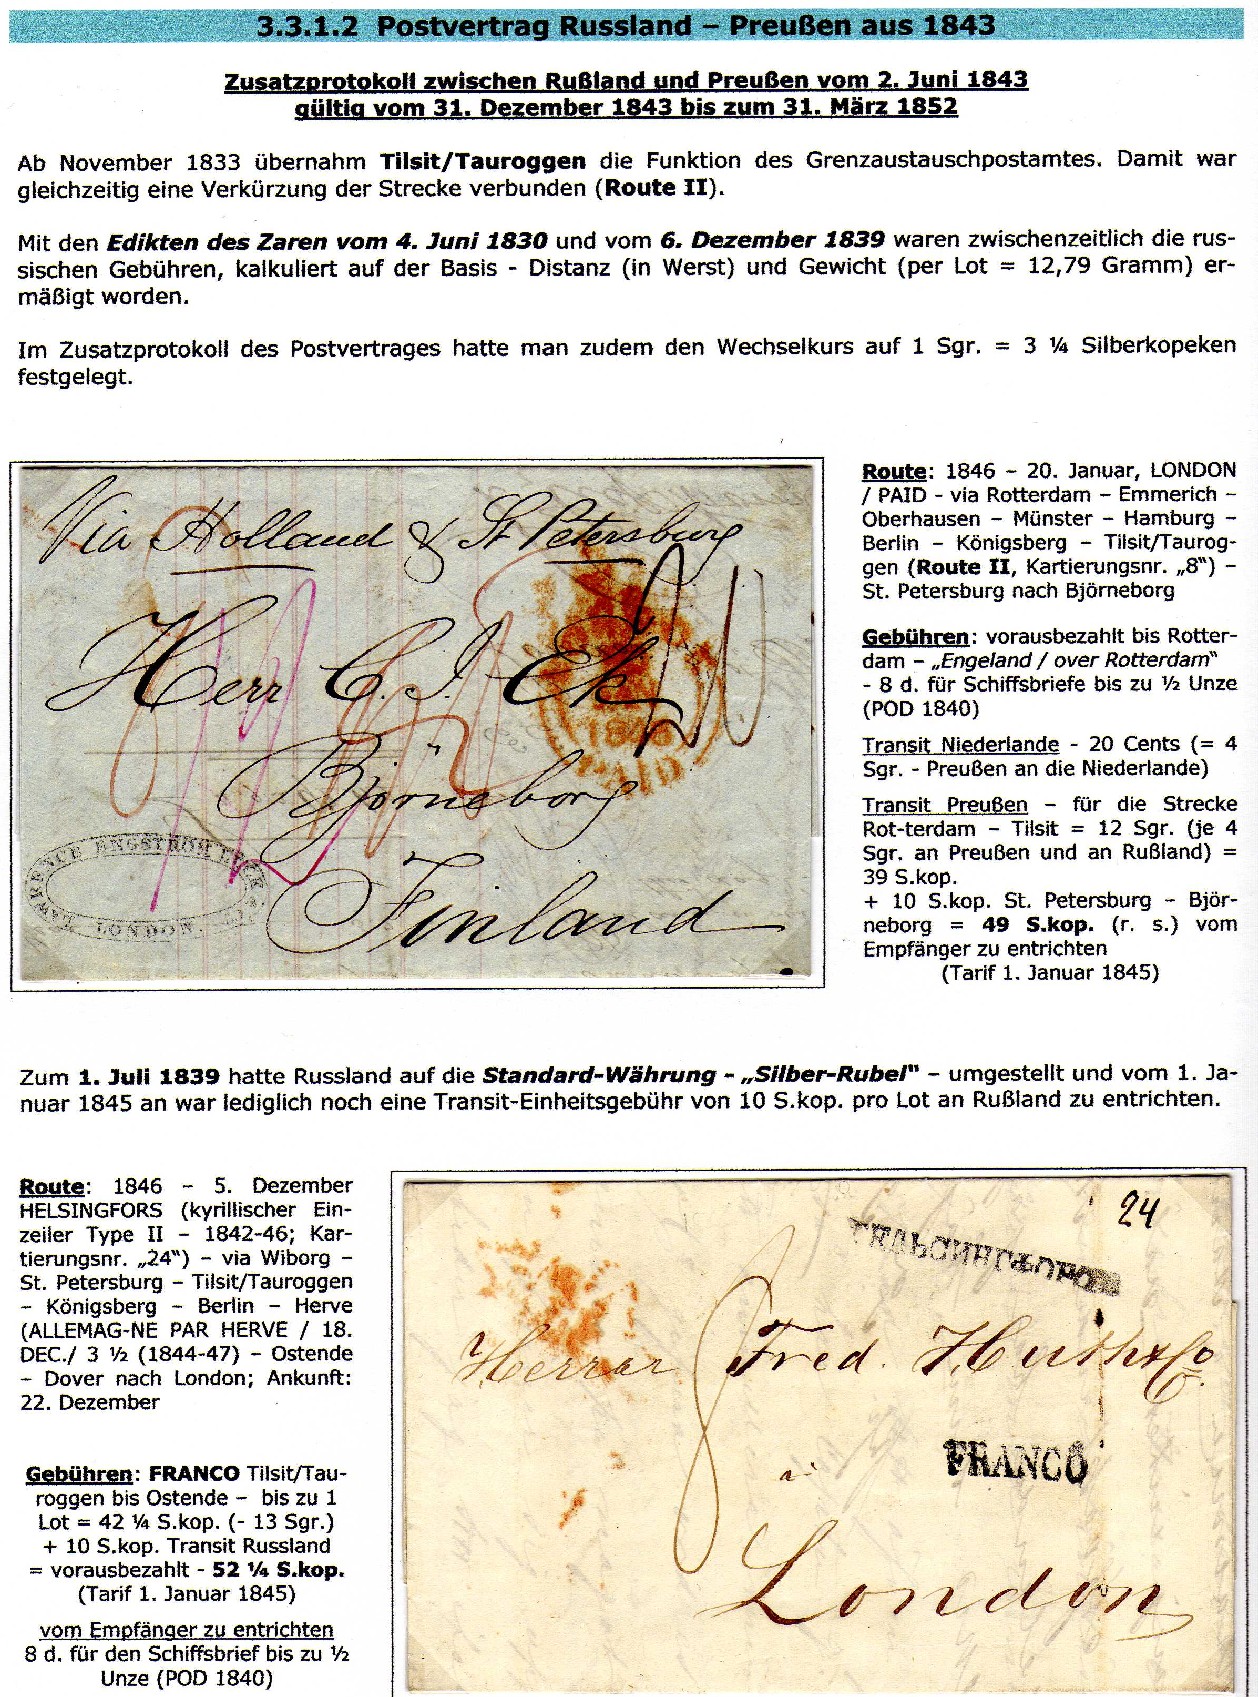 3.3.1.2 Postvertrag Russland – Preußen aus 1843
Zusatzprotokoll zwischen Rußland und Preußen vom 2. Juni 1843
gültig vom 31. Dezember 1843 bis zum 31. März 1852
Ab November 1833 übernahm Tilsit/Tauroggen die Funktion des Grenzaustauschpostamtes. Damit war
gleichzeitig eine Verkürzung der Strecke verbunden (Route II).
Mit den Edikten des Zaren vom 4. Juni 1830 und vom 6. Dezember 1839 waren zwischenzeitlich die rus-
sischen Gebühren, kalkuliert auf der Basis - Distanz (in Werst) und Gewicht (per Lot = 12,79 Gramm) er-
mäßigt worden.
Im Zusatzprotokoll des Postvertrages hatte man zudem den Wechselkurs auf 1 Sgr. = 3 ¼ Silberkopeken
festgelegt.
Via Holland & St Petersburg
Herr C. J. Ek
Björneborg
Finland
1846
PAID
LAWRENCE ENGSTRÖM
LONDON.
Route: 1846 – 20. Januar, LONDON
/ PAID - via Rotterdam – Emmerich –
Oberhausen – Münster – Hamburg –
Berlin – Königsberg – Tilsit/Taurog-
gen (Route II, Kartierungsnr. „8“) –
St. Petersburg nach Björneborg
Gebühren: vorausbezahlt bis Rotter-
dam – „Engeland / over Rotterdam“
- 8 d. für Schiffsbriefe bis zu ½ Unze
(POD 1840)
Transit Niederlande - 20 Cents (= 4
Sgr. - Preußen an die Niederlande)
Transit Preußen – für die Strecke
Rot-terdam – Tilsit = 12 Sgr. (je 4
Sgr. an Preußen und an Rußland) =
39 S.kop.
+ 10 S.kop. St. Petersburg – Björ-
neborg = 49 S.kop. (r. s.) vom
Empfänger zu entrichten
(Tarif 1. Januar 1845)
Zum 1. Juli 1839 hatte Russland auf die Standard-Währung - „Silber-Rubel“ – umgestellt und vom 1. Ja-
nuar 1845 an war lediglich noch eine Transit-Einheitsgebühr von 10 S.kop. pro Lot an Rußland zu entrichten.
Route: 1846 – 5. Dezember
HELSINGFORS (kyrillischer Ein-
zeiler Type II – 1842-46; Kar-
tierungsnr. „24“) – via Wiborg –
St. Petersburg – Tilsit/Tauroggen
– Königsberg – Berlin – Herve
(ALLEMAG-NE PAR HERVE / 18.
DEC./ 3 ½ (1844-47) – Ostende
– Dover nach London; Ankunft:
22. Dezember
Gebühren: FRANCO Tilsit/Tau-
roggen bis Ostende – bis zu 1
Lot = 42 ¼ S.kop. (- 13 Sgr.)
+ 10 S.kop. Transit Russland
= vorausbezahlt - 52 ¼ S.kop.
(Tarif 1. Januar 1845)
vom Empfänger zu entrichten
8 d. für den Schiffsbrief bis zu ½
Unze (POD 1840)
24
ГЕЛЬСИНГФОРСЪ
Herrar Fred. Huth & Co
FRANCO
London